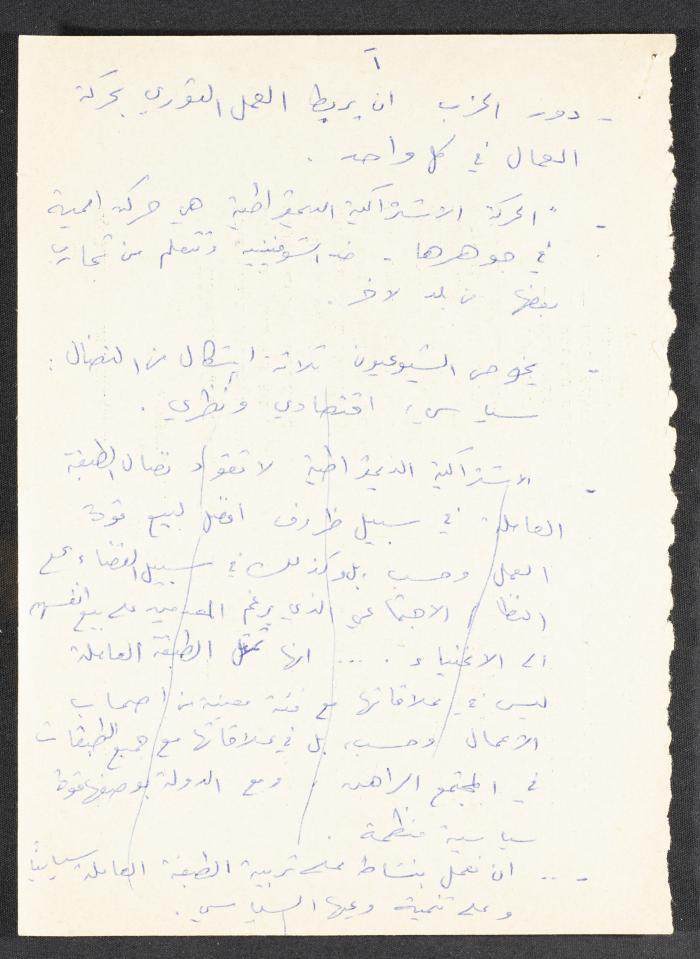 ٢
- دور الحزب ان يربط العمل الثوري بحركة
العمال في كل واحد .
- " الحركة الاشتراكية الديمقراطية هي حركة اممية
في جوهرها - ضد الشوفينية وتتعلم من تجارب
بعضها من بلد لاخر .
- يخوض الشيوعيون ثلاثة اشكال من النضال :
سياسي، اقتصادي ونظري .
- الاشتراكية الديمقراطية لا تقود نضال الطبقة
العاملة في سبيل ظروف افضل لبيع قوة
العمل وحسب بل وكذلك في سبيل القضاء على
النظام الاجتماعي الذي يرغم المعدمين على بيع انفسهم
الى الاغنياء .... انها تمثل الطبقة العاملة
ليس في علاقاتها مع فئة معينة من اصحاب
الاعمال وحسب، بل في علاقاتها مع جميع الطبقات
في المجتمع الراهن ، ومع الدولة بوصفها قوة
سياسية منظمة .
- ... ان نعمل بنشاط على تربية الطبقة العاملة سياسيًا
وعلى تنمية وعيها السياسي .